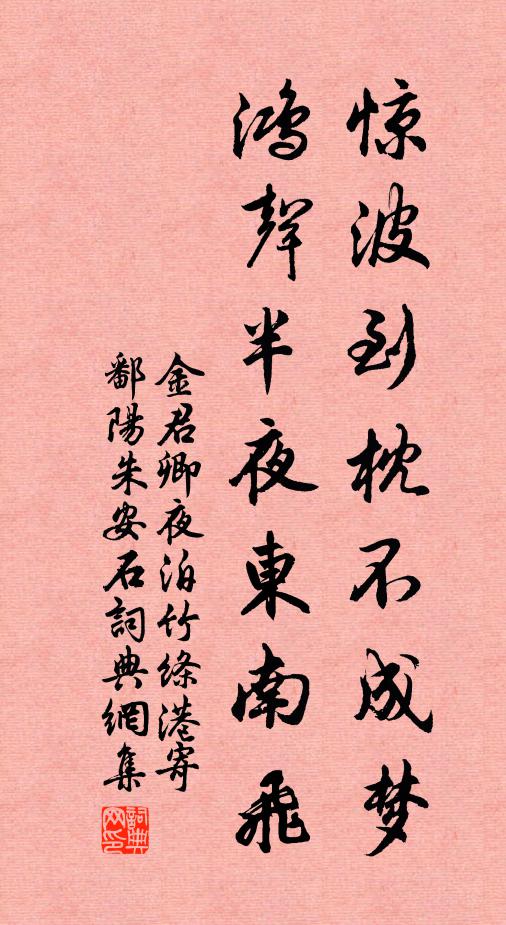 惊波到枕不成梦
鸿聲半夜東南飛
金君卿夜泊竹絛港寄
鄱陽朱安石詞典網集
詞典
网印